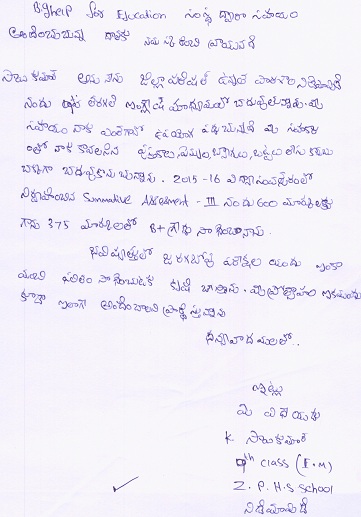 Bighelp for Education సంస్థ ద్వారా సహాయం
అందించుచున్న దాతకు నమస్కరించి వ్రాయునది
సాయి కుమార్ అను నేను జిల్లా పరిషత్ ఉన్నత పాఠశాల
నందు తరగతి ఇంగ్లీష్ మాధ్యమంలో చదువుచున్నాను. మీ
సహాయం నాకు ఎంతగానో ఉపయోగ పడుచున్నది మీ సహకారం
తో నాకు కావలసిన పుస్తకాలు, పెన్నులు, బ్యాగులు, బట్టలు
బాగా చదువుకొనుచున్నాను. 2015-16 విద్యా సంవత్సరంలో
నిర్వహించిన Summative Assessment - III నందు 600 మార్కులకు
గాను 375 మార్కులతో B+ గ్రేడు సాధించినాను.
భవిష్యత్తులో జరగబోవు పరీక్షల యందు ఇంకా
మంచి ఫలితం సాధించుటకు కృషి చేస్తాను. మీ ప్రోత్సాహం ఇకముందు
కూడా ఇలాగే అందించాలని ప్రార్థిస్తున్నాను
ధన్యవాదములతో..
ఇట్లు
మీ విధేయుడు
K. సాయి కుమార్
9th class (E.M)
Z.P.H.S school
నిడమానూరు